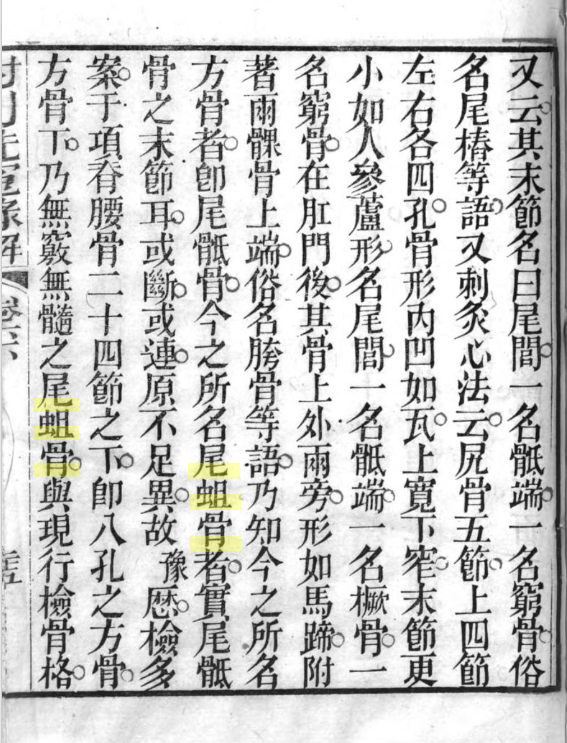 又云其末節名曰尾閭一名骶端一名窮骨俗
名尾樁等語又刺灸心法云尻骨五節上四節
左右各四孔骨形內凹如瓦上寬下窄末節更
小如人參蘆形名尾閭一名骶端一名橛骨一
名窮骨在肛門後其骨上外兩旁形如馬蹄附
著兩髁骨上端俗名胯骨等語乃知今之所名
方骨者卽尾骶骨今之所名尾蛆骨者實尾骶
骨之末節耳或斷或連原不足異故豫厯檢多
案于項脊腰骨二十四節之下卽八孔之方骨
方骨下乃無竅無髓之尾蛆骨與現行檢骨格
冤錄解 卷六